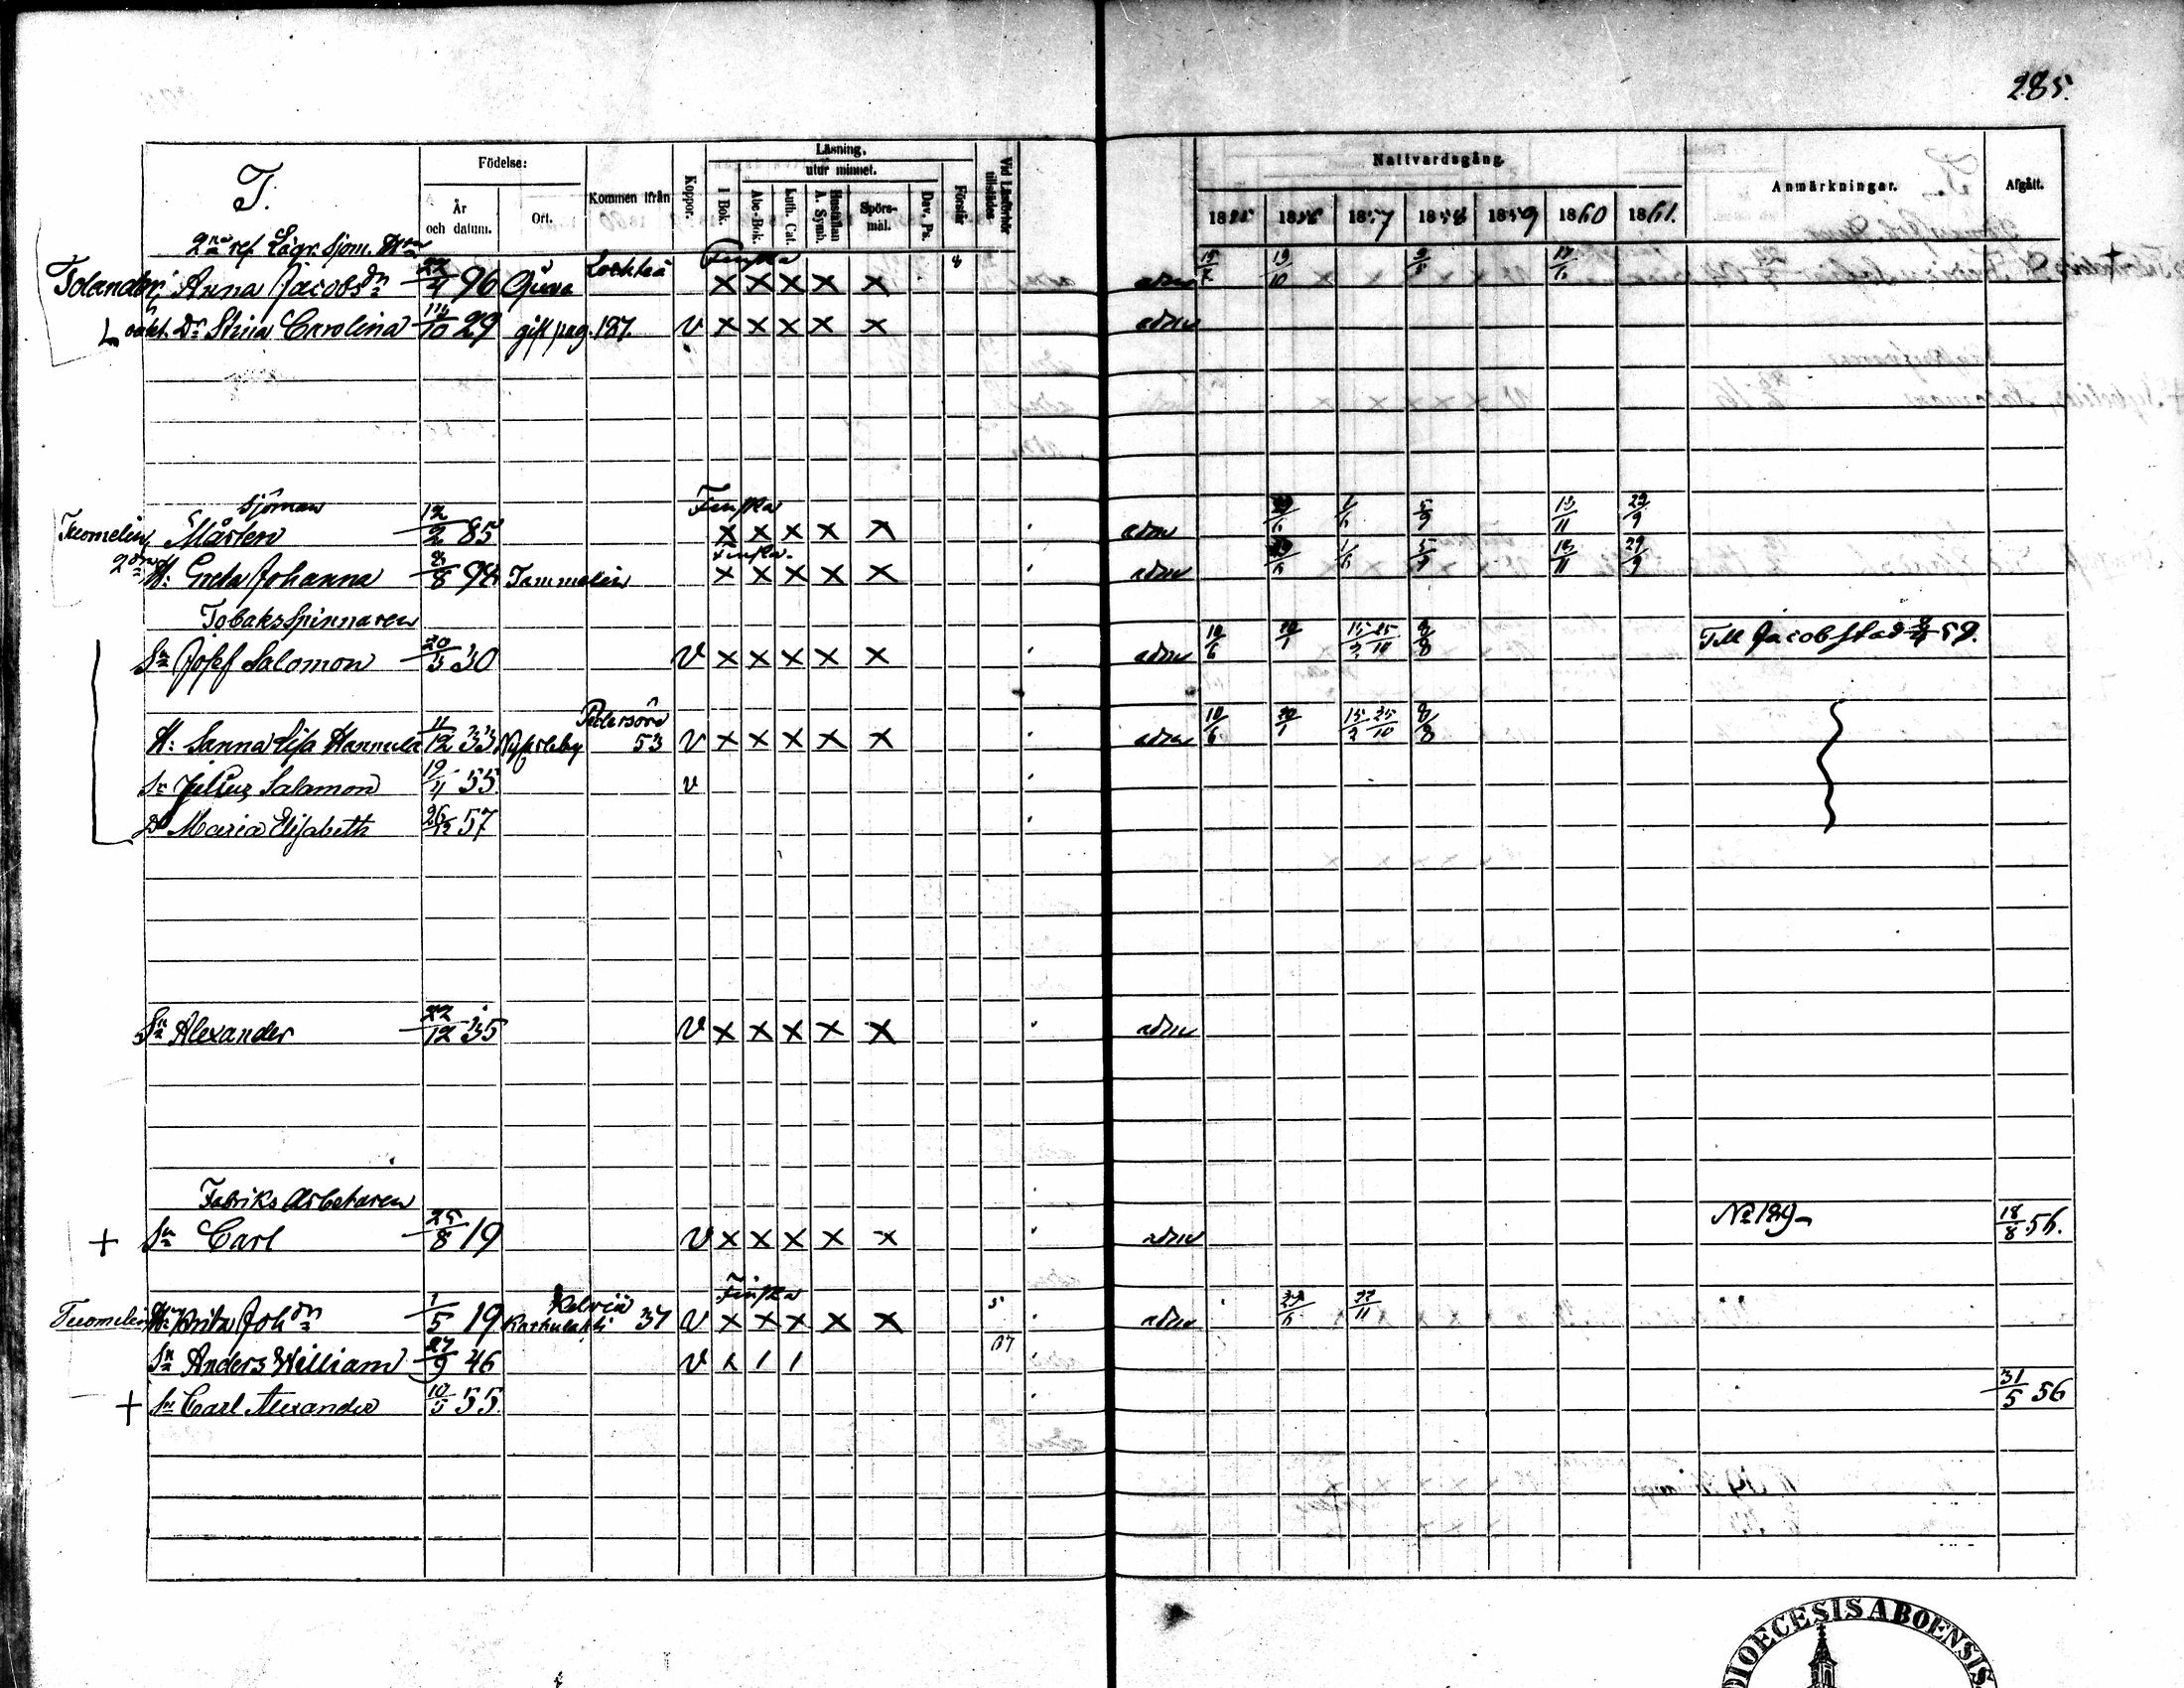 285.
T.
Födelse:
År och datum.
Ort.
Kommen ifrån
Koppor.
Läsning,
utur minnet.
I Bok.
Abc-Bok.
Luth. Cat.
Hustaflan A. Symb.
Spörs-mål.
Dav. Ps.
Förstår
Vid Läsförhör tillstädes
Nattvardsgång.
1855 1856 1857 1858 1859 1860 1861.
Anmärkningar.
Afgått.
Sjöm.
Lochteå Finska
Tolander, Anna Jacobsdr 22/4 96 × × × × × 8 adm
oäkt. Dr Stina Carolina /10 29 gift pag. 187. v × × × × × adm
Sjöman Finska
Tuomelin, Mårten 12/2 85 × × × × × adm 1/6 5/9 13/11 29/9
Finska.
H: Greta Johanna /8 94 Tammelin × × × × × adm 1/6 5/9 13/11 29/9
Tobaksspinnaren
Sn Josef Salomon 20/3 30 v × × × × × adm 10/6 20/1 15/2 25/10 8/8 Till Jacobstad 59.
Pedersöre
H: Sanna Lisa Hannula 11/12 33 Nykarleby 53 v × × × × × adm 10/6 20/1 15/2 25/10 8/8
Sn Julius Salamon 19/11 55 v
Dr Maria Elisabeth 26/12 57
Sn Alexander 22/12 35 v × × × × × adm
Fabriks Arbetaren
+ Sn Carl 25/8 19 v × × × × × adm No 189 18/8 56.
Kelviä Finska
Tuomelin Brita Johdr 1/5 19 37 v × × × × × 5 adm 22/11
Sn Anders William 27/9 46 v × / / 57
+ Sn Carl Alexander 10/5 55. 31/5 56
DIOECESIS ABOENSIS